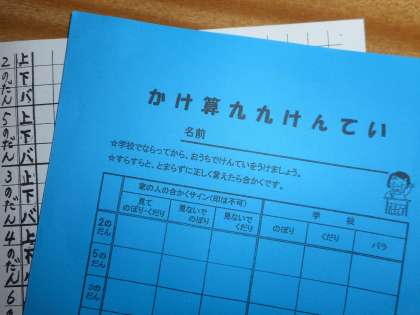 かけ算九九けんてい
名前
☆学校でならってから、おうちでけんていをうけましょう。
☆すらすらと、とまらずに正しく言えたら合かくです。
家の人の合かくサイン(印は不可)
学校
見て
のぼり・くだり
見ないで
のぼり
見ないで
くだり
のぼり
くだり
バラ
2の
だん
5の
だん
3の
だん
2のだん
上
下
バ
5のだん
上
下
バ
3のだん
上
下
バ
4のだん
上
下
バ
6